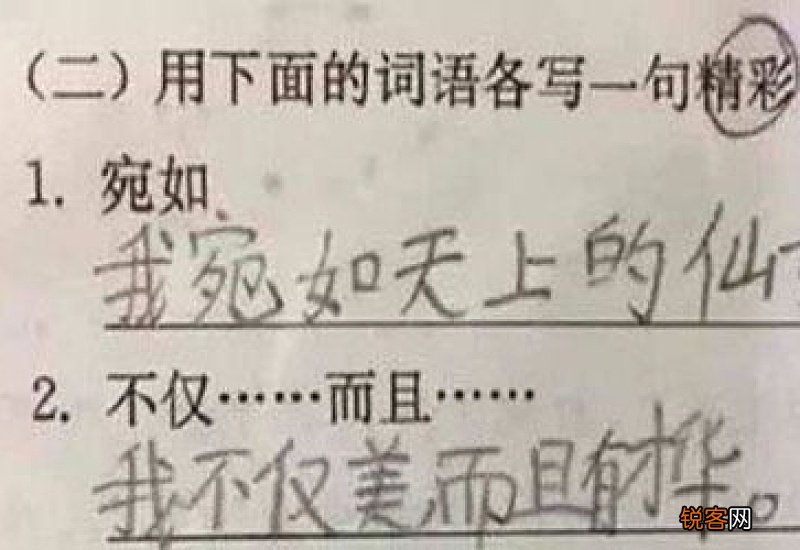 （二）用下面的词语各写一句精彩
1. 宛如
我宛如天上的仙
2. 不仅……而且……
我不仅美,而且有才华。
锐客网